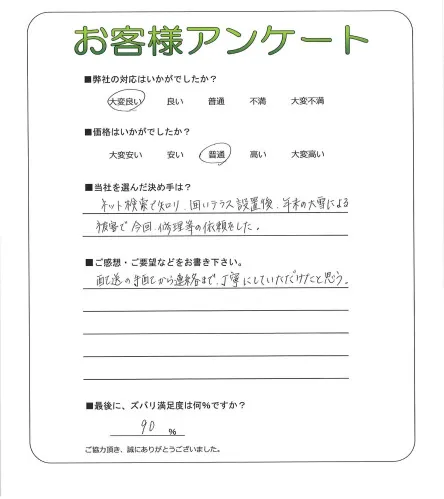 お客様アンケート
■弊社の対応はいかがでしたか?
大変良い 良い 普通 不満 大変不満
■価格はいかがでしたか?
大変安い 安い 普通 高い 大変高い
■当社を選んだ決め手は?
ネット検索で知り、囲いテラス設置後、年末の大雪による
被害で今回、修理等の依頼をした。
■ご感想・ご要望などをお書き下さい。
配送の手配から連絡まで、丁寧にしていただけたと思う。
■最後に、ズバリ満足度は何%ですか?
90 %
ご協力頂き、誠にありがとうございました。